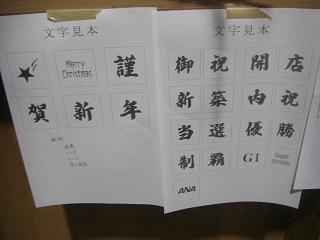 文字見本
Merry Christmas 謹
賀 新 年
文字見本
御 祝 開 店
新 築 内 祝
当 選 優 勝
制 覇 GI Happy Birthday
ANA